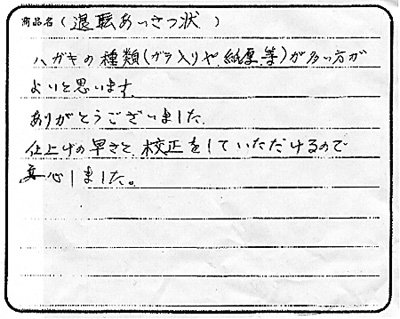 商品名（退転あいさつ状）
ハガキの種類（ガラ入りや紙厚等）が多い方が
よいと思います
ありがとうございました
仕上げの早さと、校正をしていただけるので
安心しました。